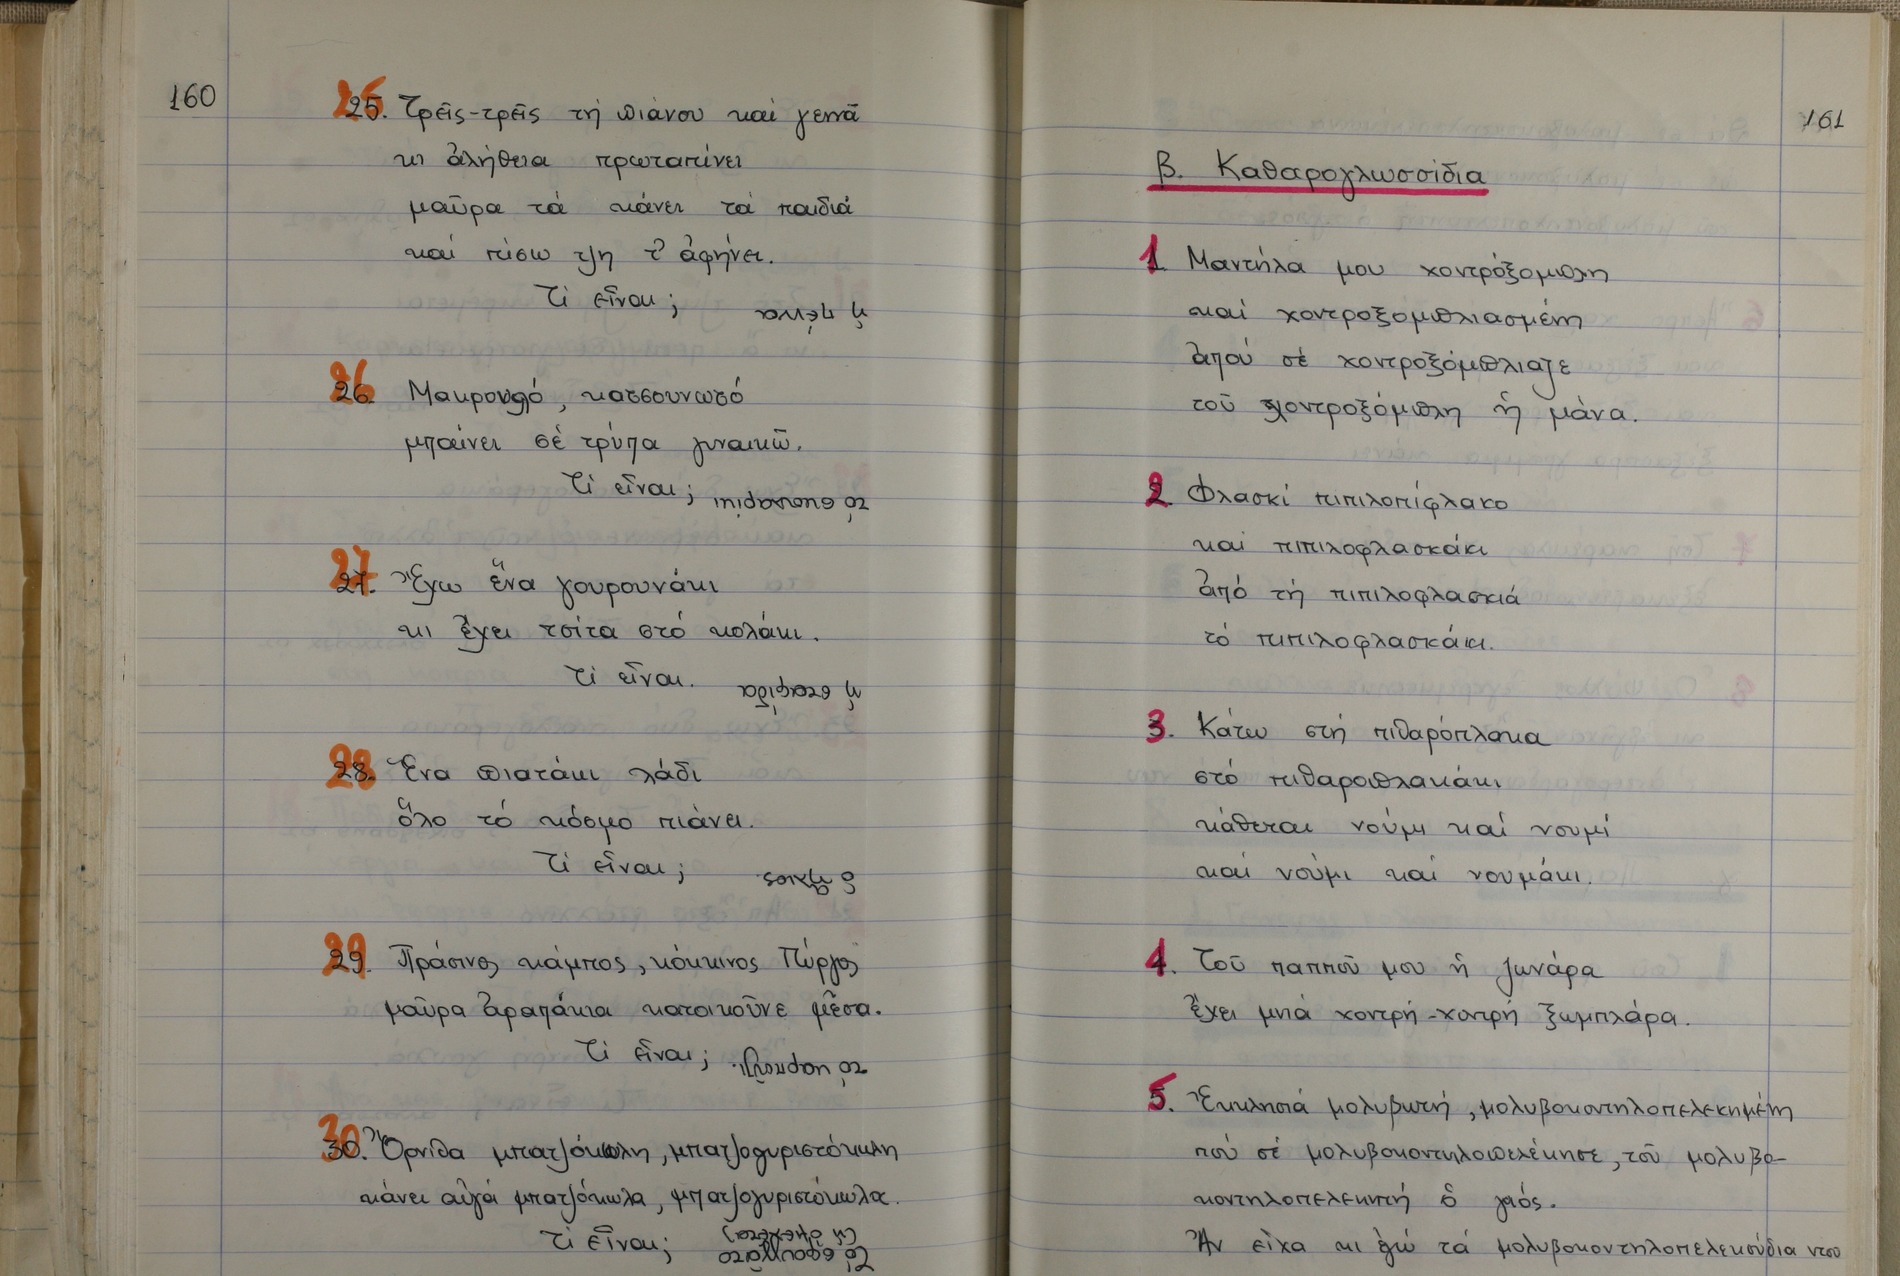 160
25. Τρεῖς-τρεῖς τή πιάνου καί γεννᾶ
κι ἀλήθεια πρωταπίνει
μαῦρα τά κάνει τά παιδιά
καί πίσω τζη τ' ἀφήνει.
Τί εἶναι;
ἡ πέννα
26. Μακρουλό, κατσουνωτό
μπαίνει σέ τρύπα γυναικῶ.
Τί εἶναι;
τό σκουλαρίκι
27. Ἔχω ἕνα γουρουνάκι
κι ἔχει τσίτα στό κολάκι.
Τί εἶναι.
ἡ σταφίδα
28. Ἕνα πιατάκι λάδι
ὅλο τό κόσμο πιάνει.
Τί εἶναι;
ὁ ἥλιος.
29. Πράσινος κάμπος, κόκκινος Πύργος
μαῦρα ἀραπάκια κατοικοῦνε μέσα.
Τί εἶναι;
τό καρπούζι.
30. Ὄρνιθα μπατζόκωλη, μπατζογυριστόκωλη
κάνει αὐγά μπατζόκωλα, μπατζογυριστόκωλα.
Τί εἶναι;
161
β. Καθαρογλωσσίδια
1. Μαντήλα μου χοντρόξομπλη
καί χοντροξομπλιασμένη
ἀπού σέ χοντροξόμπλιαζε
τοῦ χοντροξόμπλη ἡ μάνα.
2. Φλασκί πιπιλοπίφλακο
καί πιπιλοφλασκάκι
ἀπό τή πιπιλοφλασκιά
τό πιπιλοφλασκάκι.
3. Κάτω στή πιθαρόπλακα
στό πιθαροπλακάκι
κάθεται νούμι καί νουμί
καί νούμι καί νουμάκι.
4. Τοῦ παπποῦ μου ἡ γωνάρα
ἔχει μιά χοντρή-χοντρή ξωμπλάρα.
5. Ἐκκλησιά μολυβωτή, μολυβοκοντηλοπελεκημένη
πού σέ μολυβοκοντηλοπελέκησε, τοῦ μολυβο-
κοντηλοπελεκητή ὁ γιός.
Ἄν εἶχα κι ἐγώ τά μολυβοκοντηλοπελεκούδια ντου